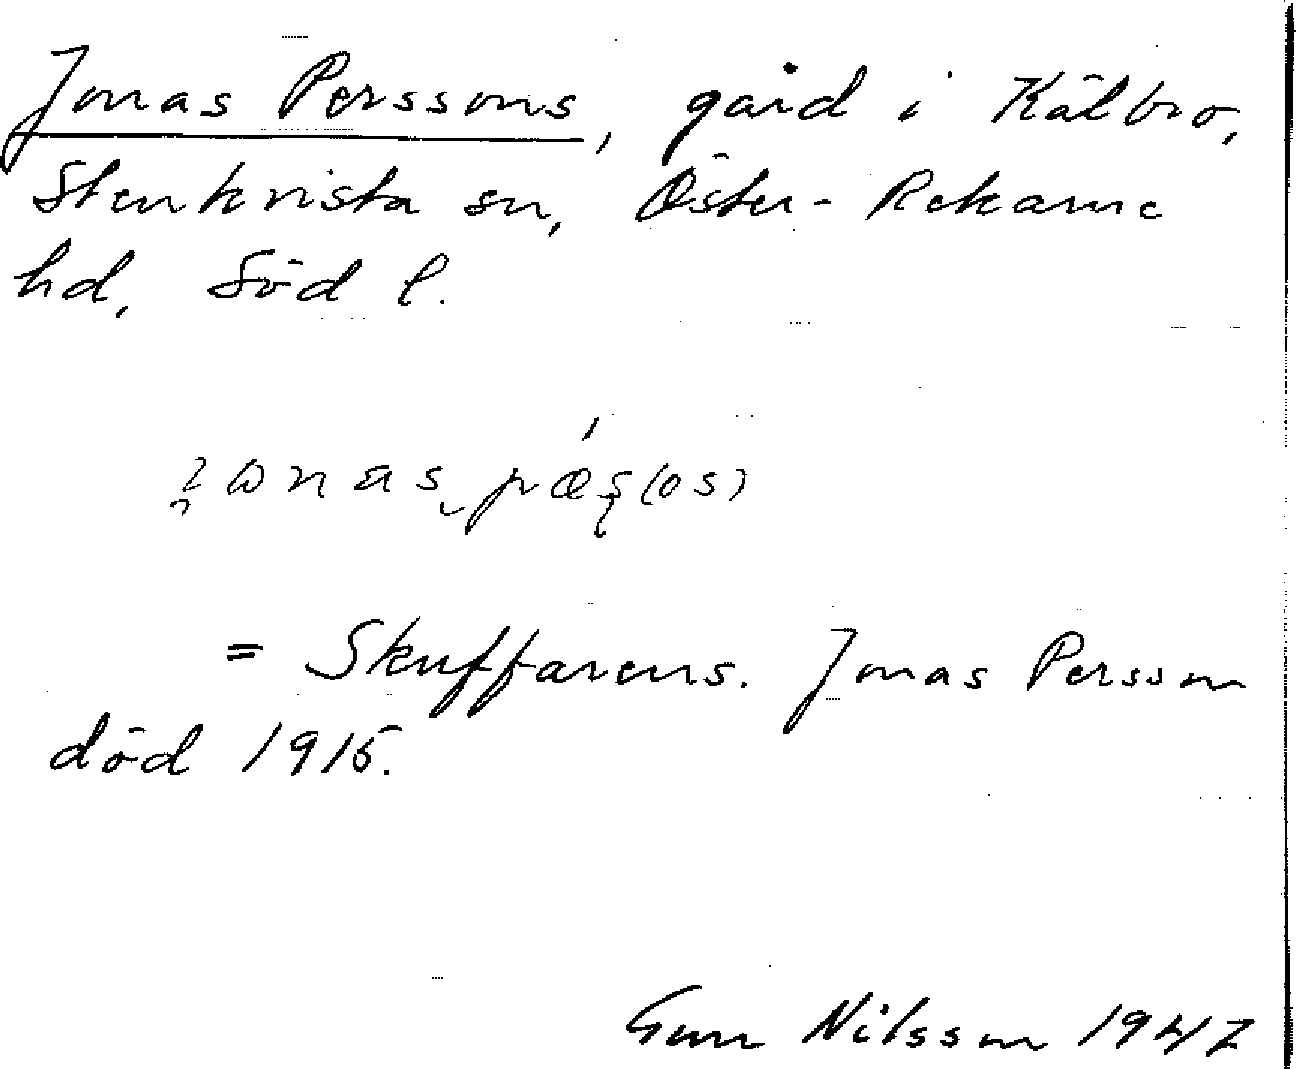 Jonas Perssons, gård i Kälbro,
Stenkvista sn, Öster-Rekarne
hd, Söd l.
= Skuffarens. Jonas Persson
död 1915.
Gun Nilsson 1947